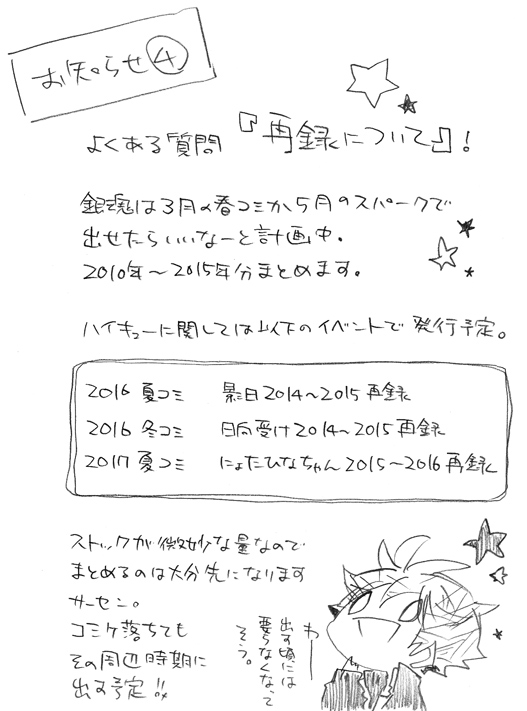 お知らせ④
よくある質問『再録について』!
銀魂は3月の春コミか5月のスパークで
出せたらいいなーと計画中。
2010年~2015年分まとめます。
ハイキューに関しては以下のイベントで発行予定。
2016 夏コミ 影日2014~2015再録
2016 冬コミ 日向受け2014~2015再録
2017 夏コミ にょたひなちゃん2015~2016再録
ストックが微妙な量なので
まとめるのは大分先になります
サーセン。
コミケ落ちても
その周辺時期に
出す予定!!
わー
出す頃には
要らなくなって
そう。